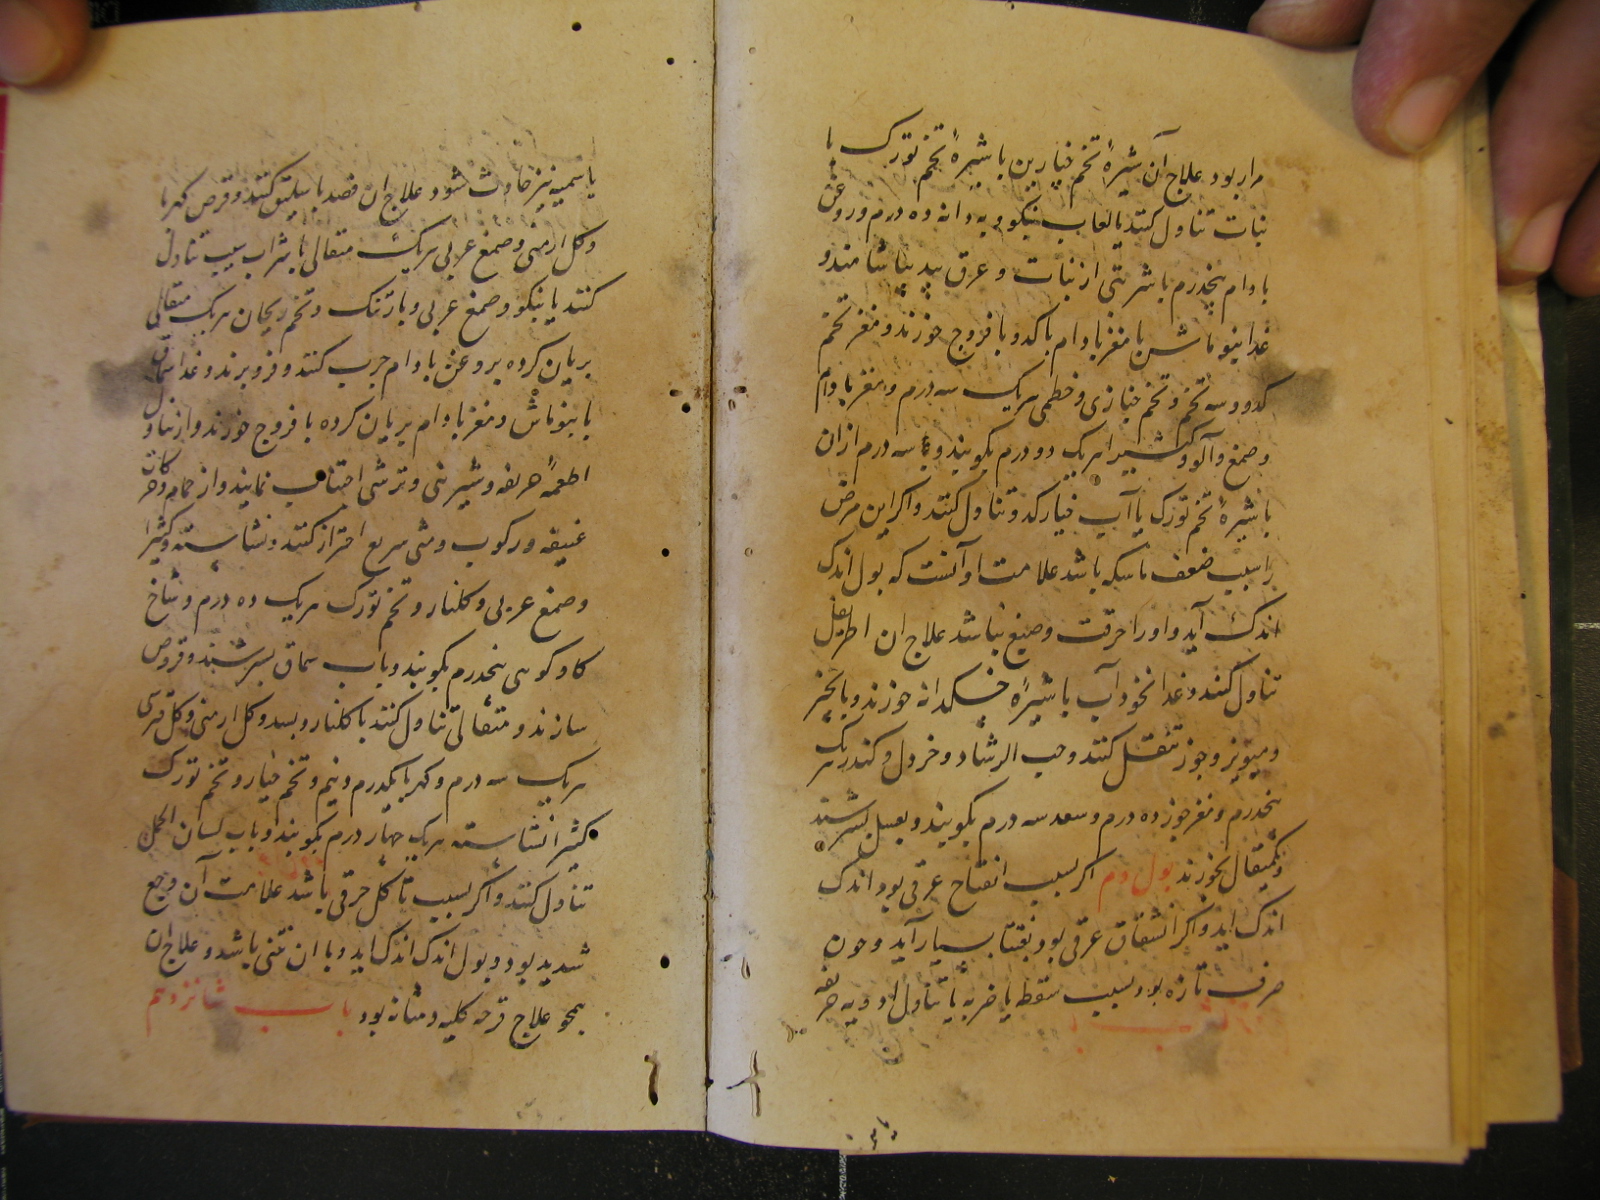 مرار بود علاج آن شیرهٔ تخم خیارین با شیرهٔ تخم تورک با
نبات تناول کنند یا لعاب بنکو و به دانه ده درم و روغن
بادام پنجدرم با شربتی از نبات و عرق بید بیاشامند و
غدا بنوماش با مغز بادام با کدو با فروج خورند و مغز تخم
کدو و سه تخم و تخم خبازی و خطمی هریک سه درم و مغز بادام
و صمغ و آلو و کثیرا هریک دو درم بکوبند و سه درم از ان
با شیرهٔ تخم تورک یا آب خیار کدو تناول کنند و اکر این مرض
را سبب ضعف ماسکه باشد علامت او آنست که بول اندک
اندک آید و او را حرقت و صبغ نباشد علاج ان اطریفل
تناول کنند و غدا نخودآب با شیرهٔ خسکدانه خورند و بانجیر
و میویز و جوز تنقل کنند و حب الرشاد و خردل و کندر هریک
پنجدرم و مغز جوز ده درم و سعد سه درم بکوبند و بعسل بسرشند
و یکمثقال بخورند بول دم اکر بسبب انفتاح عرقی بود اندک
اندک اید و اکر انشقاق عرقی بود بغتتا بسیار آید و خون
صرف تازه بود بسبب سقطه یا ضربه یا تناول ادویه حریفه
یا سمیه نیز حادث شود علاج ان فصد باسلیق کنند و قرص کهربا
و کل ارمنی و صمغ عربی هریک مثقالی با شراب سیب تناول
کنند یا بنکو و صمغ عربی و بارتنک و تخم ریحان هریک مثقالی
بریان کرده بروغن بادام چرب کنند و فرو برند و غدا سماق
با بنوماش و مغز بادام بریان کرده با فروج خورند و از تناول
اطعمهٔ حریفه و شیرینی و ترشی اجتناب نمایند و از حمام و حرکات
عنیفه و رکوب و مشی سریع احتراز کنند و نشاسته و کثیرا
و صمغ عربی و کلنار و تخم تورک هریک ده درم و شاخ
کاو کوهی پنجدرم بکوبند و باب سماق بسرشند و قروص
سازند و مثقالی تناول کنند با کلنار و بسد و کل ارمنی و کل قبرسی
هریک سه درم و کهربا یکدرم و نیم و تخم خیار و تخم تورک
کثیرا نشاسته هریک چهار درم بکوبند و باب لسان الحمل
تناول کنند و اکر بسبب تاکل حرقی باشد علامت آن وجع
شدید بود و بول اندک اندک اید و با ان نتنی باشد و علاج ان
همچو علاج قرحه کلیه و مثانه بود باب شانزدهم